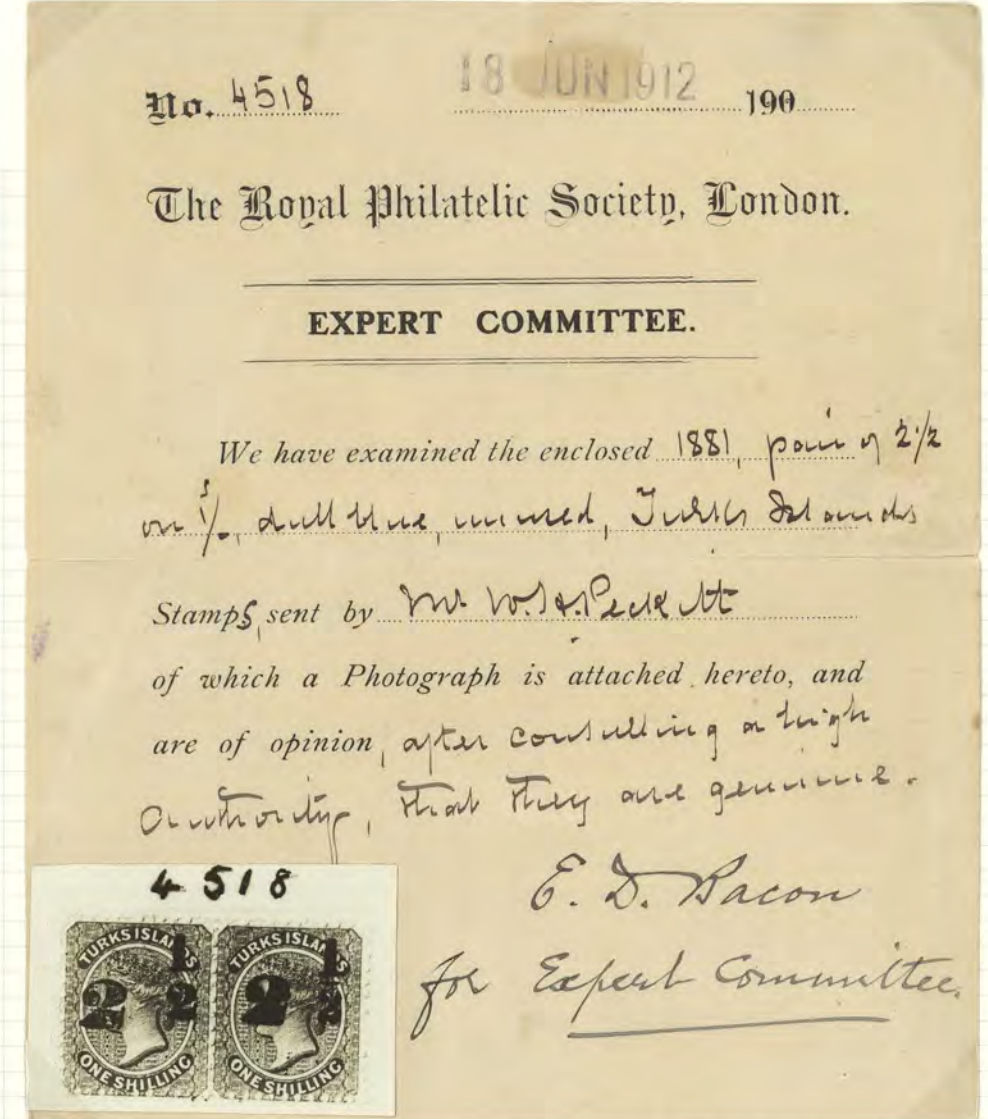 No. 4518 18 JUN 1912 190
The Royal Philatelic Society, London.
EXPERT COMMITTEE.
We have examined the enclosed 1881, pair of 2½
on 1/s, dull blue, unused, Turks Islands
Stamps, sent by Mr W. H. Peckitt
of which a Photograph is attached hereto, and
are of opinion, after consulting a high
authority, that they are genuine.
E. D. Bacon
for Expert Committee.
4518
TURKS ISLANDS TURKS ISLANDS
2 1 2 2 1 2
ONE SHILLING ONE SHILLING